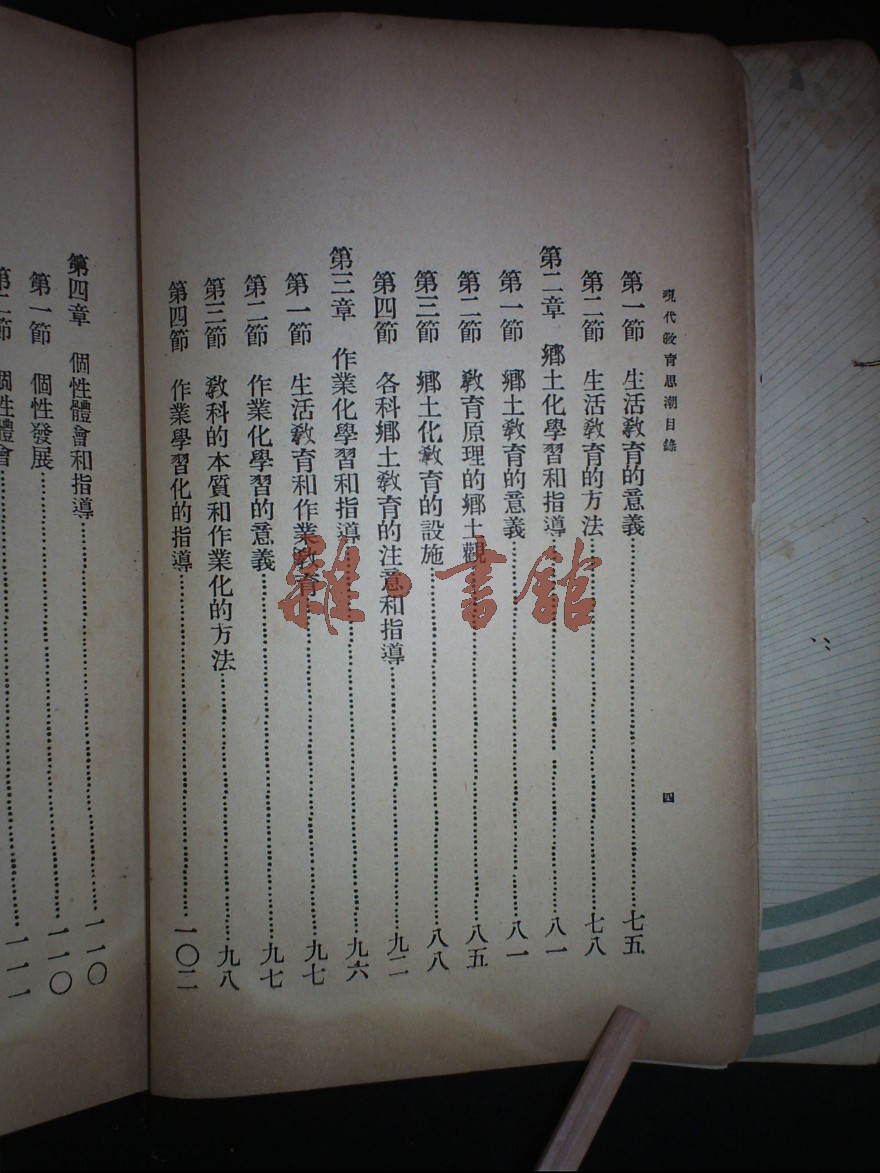 現代教育思潮目錄
四
第一節 生活教育的意義……七五
第二節 生活教育的方法……七八
第二章 鄉土化學習和指導……八一
第一節 鄉土教育的意義……八一
第二節 教育原理的鄉土觀……八五
第三節 鄉土化教育的設施……八八
第四節 各科鄉土教育的注意和指導……九二
第三章 作業化學習和指導……九六
第一節 生活教育和作業教育……九七
第二節 作業化學習的意義……九七
第三節 教科的本質和作業化的方法……九八
第四節 作業學習化的指導……一〇二
第四章 個性體會和指導……一一〇
第一節 個性發展……一一〇
第二節 個性體會……一一一
雜·書館